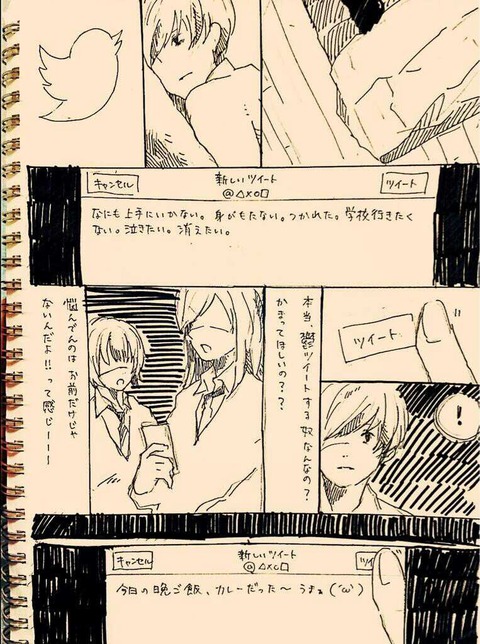 キャンセル
新しいツイート
@△×○□
ツイート
なにも上手にいかない。身がもたない。つかれた。学校行きたく
ない。泣きたい。消えたい。
ツイート
本当、鬱ツイートする奴なんなの?
かまってほしいの??
悩んでんのはお前だけじゃ
ないんだよ!!って感じーーー
!
キャンセル
新しいツイート
@△×○□
ツイ
今日の晩ご飯、カレーだった〜うまぁ(´ω`)